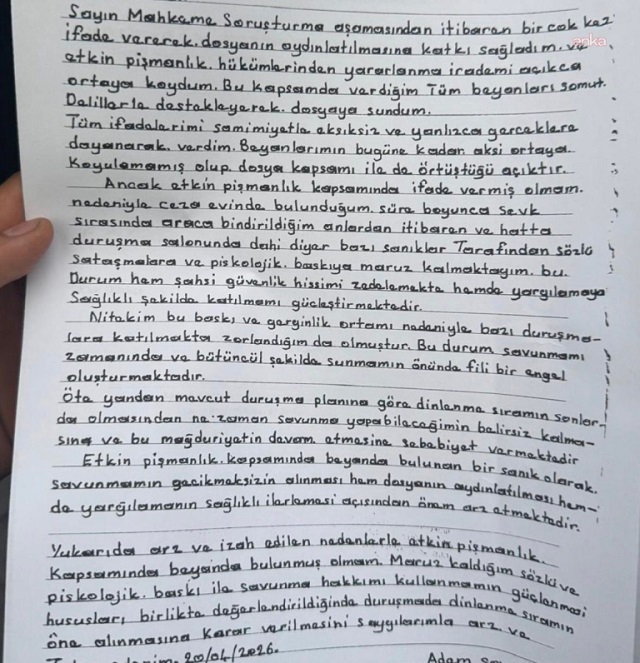 Sayın Mahkeme Soruşturma aşamasından itibaren bir cok kez
ifade vererek. dosyanın aydınlatılmasına katkı sağladım. ve
anka
etkin pişmanlık. hükümlerinden yararlanma irademi açıkca
ortaya koydum. Bu kapsamda verdiğim Tüm beyanları somut.
Delillerle destekleyerek. dosyaya sundum.
Tüm ifadelerimi samimiyetle eksiksiz ve yanlızca gerceklere
dayanarak. verdim. Beyanlarımın bugüne kadar aksi ortaya
Koyulamamış olup. dosya kapsamı ile de örtüştüğü açıktır.
Ancak etkin pişmanlık kapsamında ifade vermiş olmam.
nedeniyle ceza evinde bulunduğum. süre boyunca sevk
sırasında araca bindirildiğim anlardan itibaren ve hatta
duruşma salonunda dahi diğer bazı sanıklar Tarafından sözlü
sataşmalara ve piskolojik. baskıya maruz kalmaktayım. bu.
Durum hem şahsi güvenlik hissimi zedelemekte hemde yargılamaya
Sağlıklı şekilde katılmamı güçleştirmektedir.
Nitekim bu baskı ve gerginlik ortamı nedeniyle bazı duruşma-
lara katılmakta zorlandığım da olmuştur. Bu durum savunmamı
zamanında ve bütüncül şekilde sunmamın önünde fili bir engel
oluşturmaktadır.
Öte yandan mevcut duruşma planına göre dinlenme sıramın sonlar-
da olmasından ne zaman savunma yapabileceğimin belirsiz kalma-
sına ve bu mağduriyetin devam etmesine sebebiyet vermektedir
Etkin pişmanlık. kapsamında beyanda bulunan bir sanık olarak.
savunmamın gecikmeksizin alınması hem dosyanın aydınlatılması hem-
de yargılamanın sağlıklı ilerlemesi açısından önem arz etmektedir.
Yukarıda arz ve izah edilen nedenlerle etkin pişmanlık.
Kapsamında beyanda bulunmuş olmam. Maruz kaldığım sözlü ve
piskolojik. baskı ile savunma hakkımı kullanmamın güçlenmesi
hususları birlikte değerlendirildiğinde duruşmada dinlenme sıramın
öne alınmasına Karar verilmesini saygılarımla arz ve
20/04/2026.
Adem